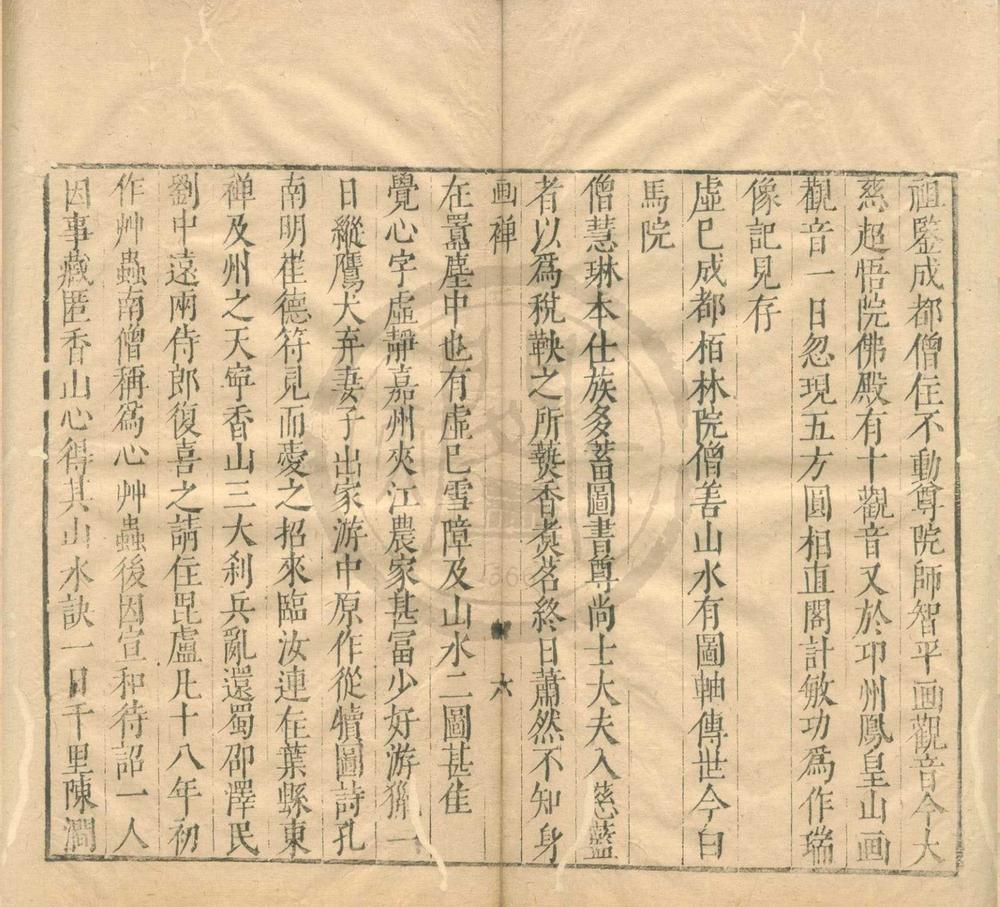 祖鑒成都僧住不動尊院師智平画觀音今大
慈超悟院佛殿有十觀音又於邛州鳳皇山画
觀音一日忽現五方圓相直閣計敏功爲作瑞
像記見存
虛已成都栢林院僧善山水有圖軸傳世今白
馬院
僧慧琳本仕族多蓄圖書尊尚士大夫入慈藍
者以爲稅鞅之所爇香煑茗終日蕭然不知身
画禅 六
在囂塵中也有虛已雪障及山水二圖甚佳
覺心字虛靜嘉州夾江農家甚冨少好游獵一
日縱鷹犬弃妻子出家游中原作從犢圖詩孔
南明崔德符見而愛之招來臨汝連在葉縣東
禅及州之天寧香山三大刹兵亂還蜀邵澤民
劉中遠兩侍郎復喜之請住毘盧凡十八年初
作艸蟲南僧稱爲心艸蟲後因宣和待詔一人
因事藏匿香山心得其山水訣一日千里陳澗